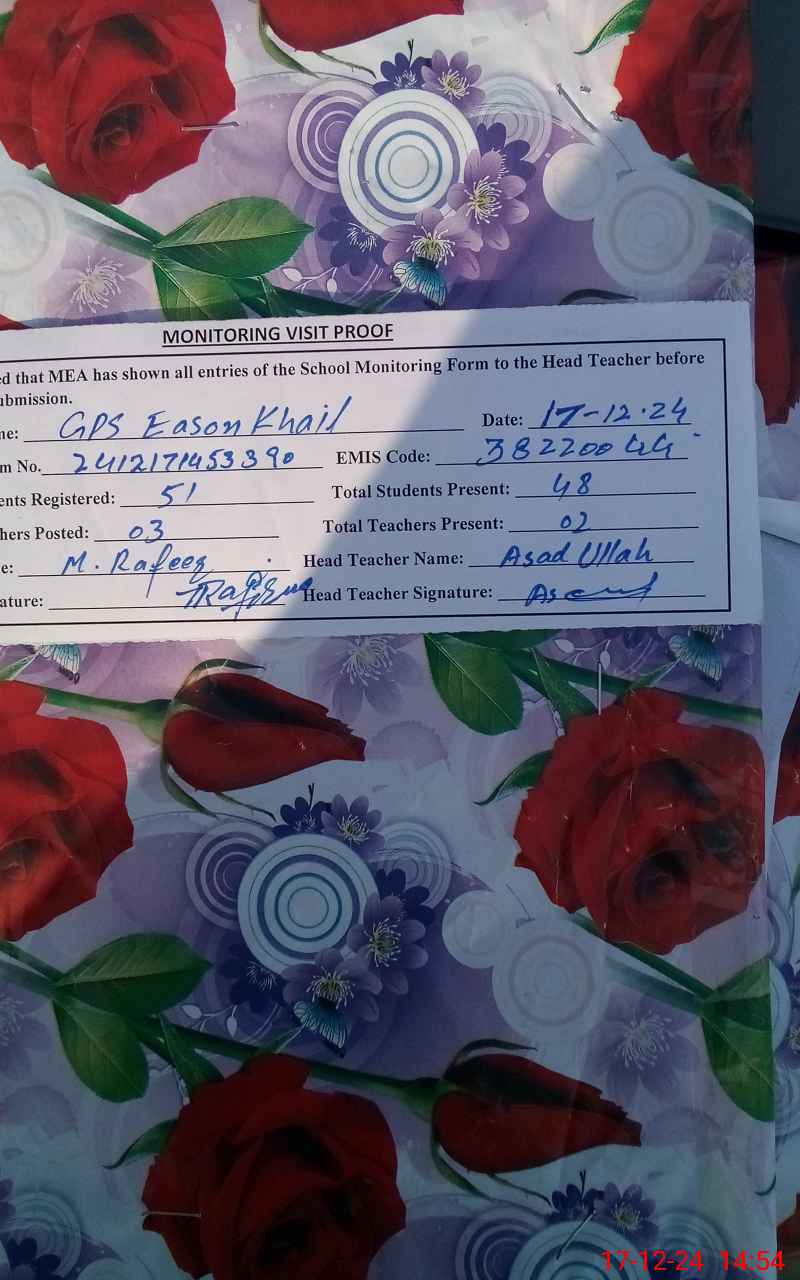 MONITORING VISIT PROOF
ed that MEA has shown all entries of the School Monitoring Form to the Head Teacher before
ubmission.
ne: GPS Eason Khail Date: 17-12-24
m No. 2412171453390 EMIS Code: 38220044
ents Registered: 51 Total Students Present: 48
hers Posted: 03 Total Teachers Present: 02
e: M. Rafeeq Head Teacher Name: Asad Ullah
ature: Head Teacher Signature:
17-12-24 14:54